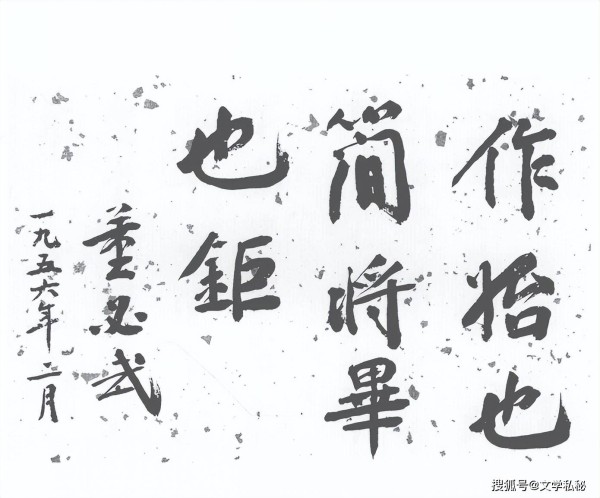 作始也
簡將畢
也鉅
董必武
一九五六年二月
搜狐号@文学私秘